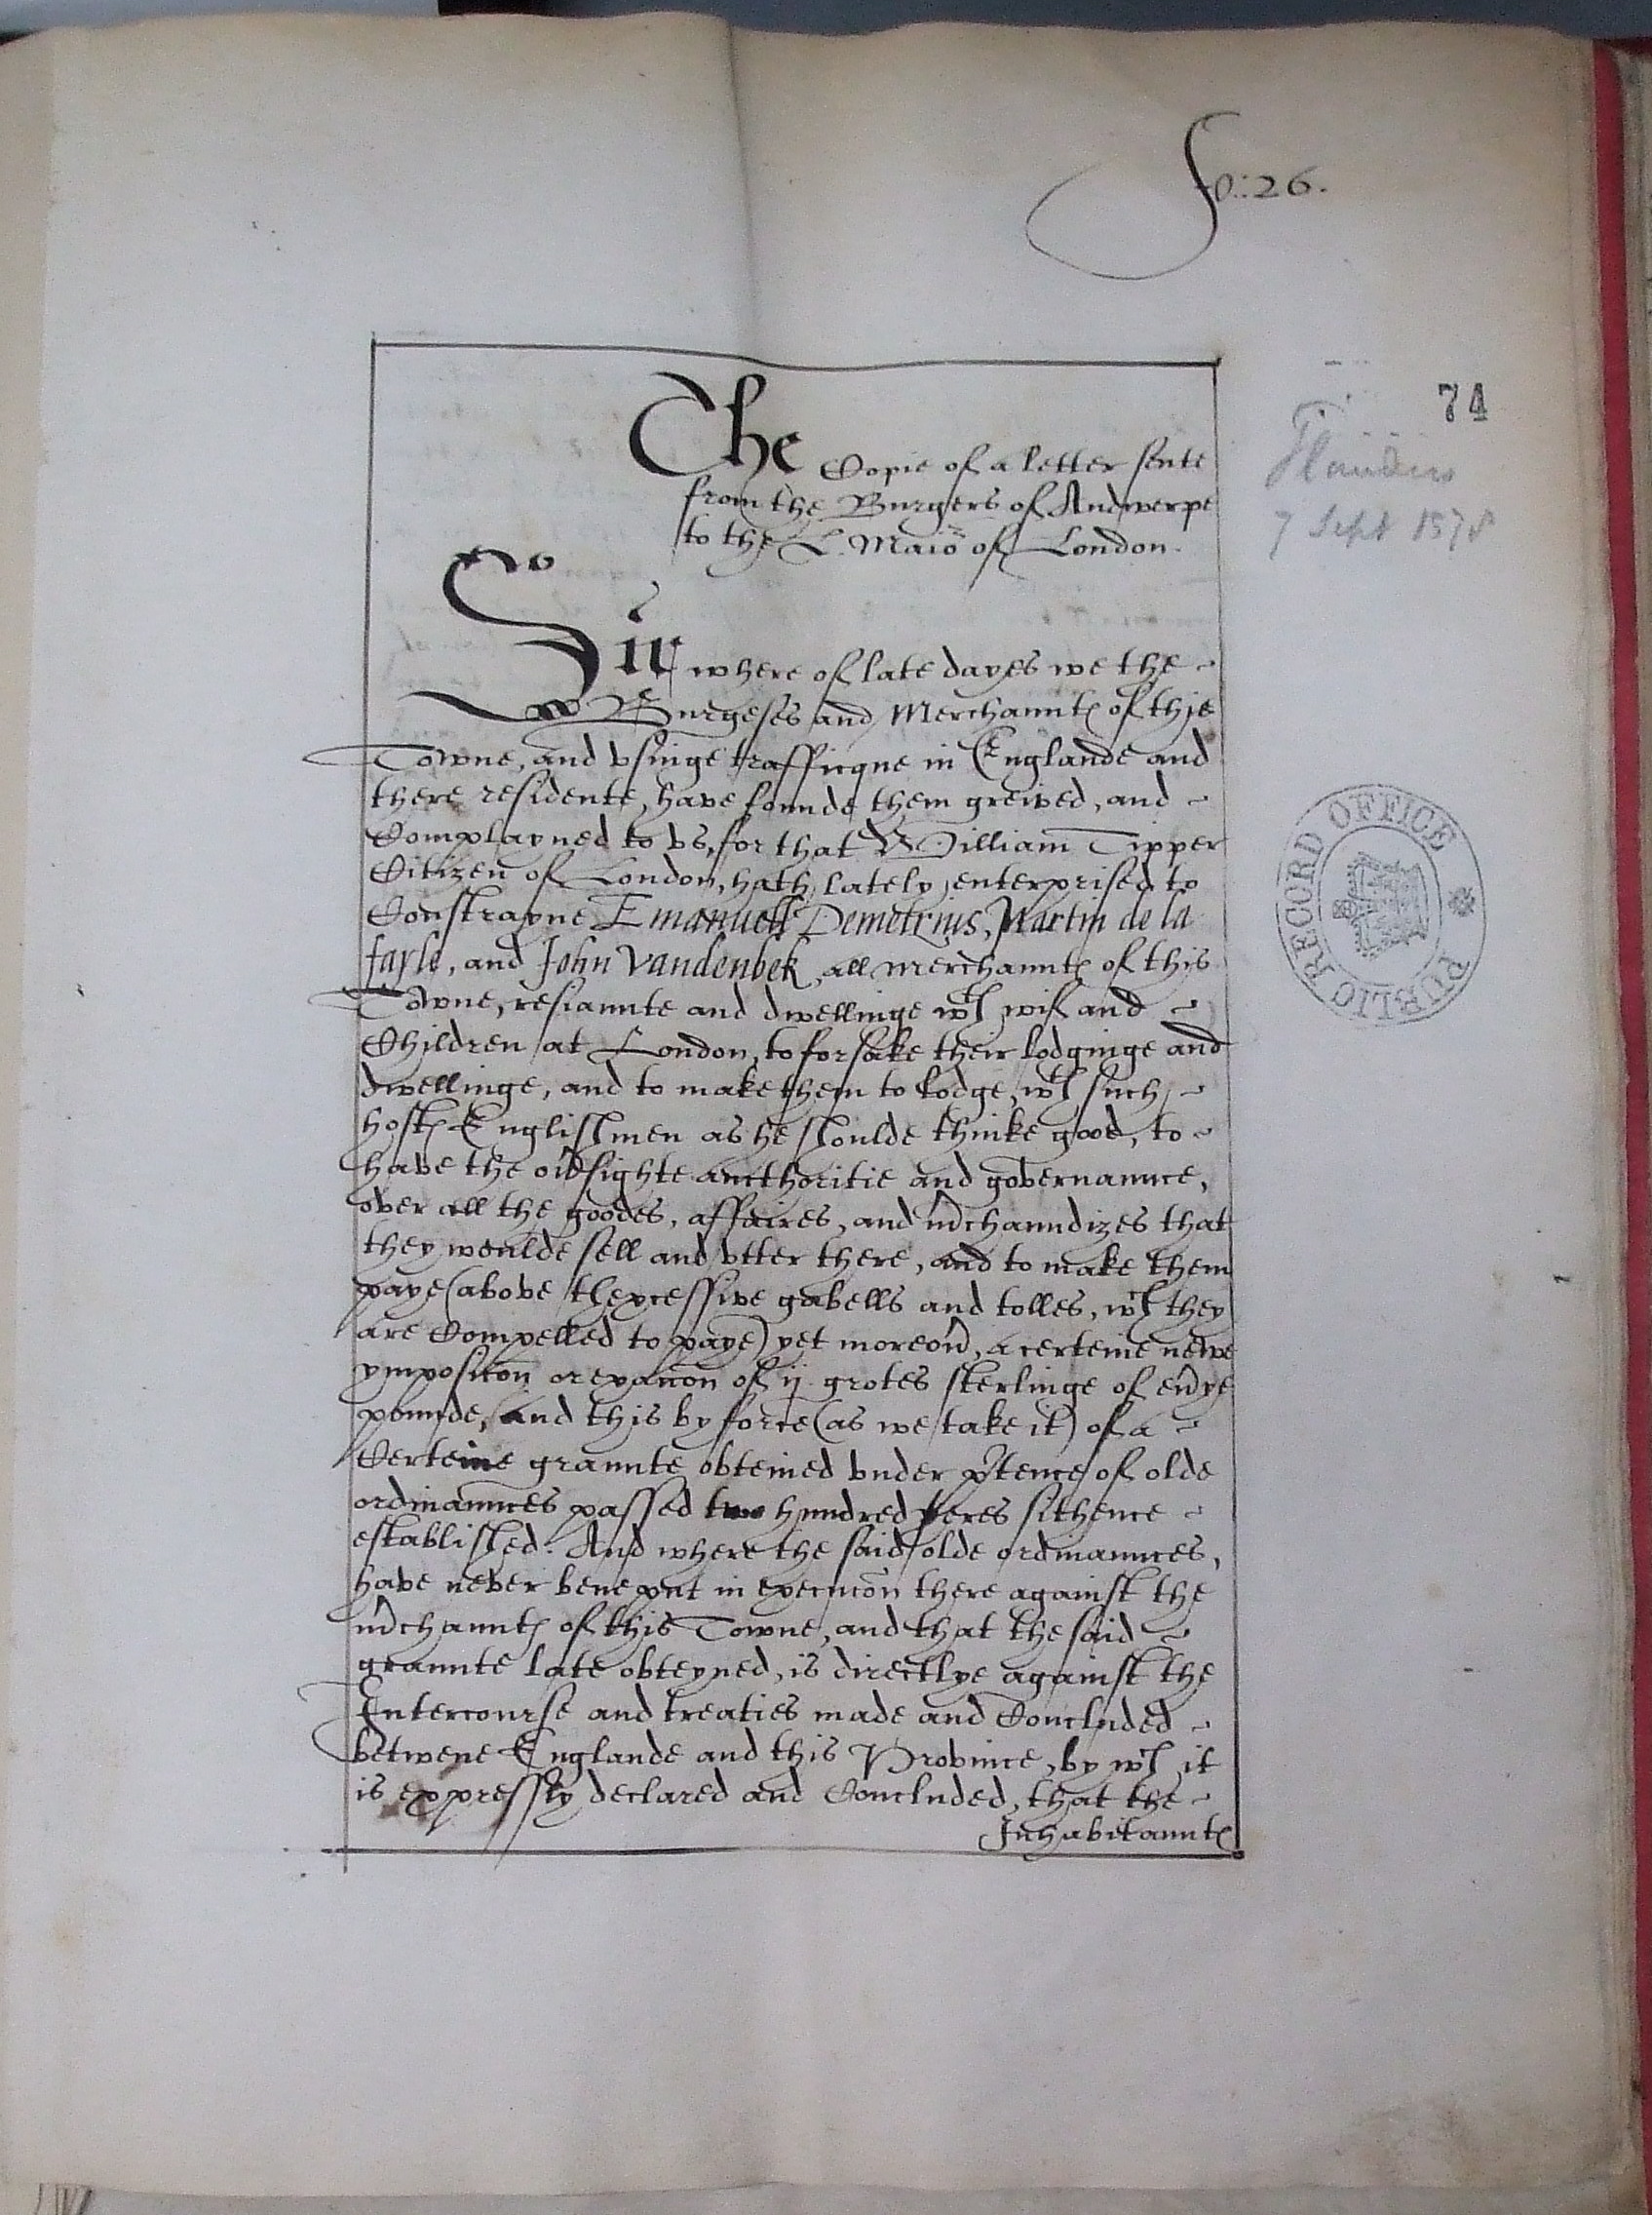 fo: 26.
74
Flanders
7 Sept 1578
The Copie of a letter sente
from the Burgers of Andwerpe
to the L. Maior of London.
Sir where of late dayes we the
Burgeses and Merchauntes of this
Towne, and vsinge trafficque in Englande and
there residente, have founde them greived, and
Complayned to vs, for that William Tipper
Citizen of London, hath lately enterprised to
Constrayne Emanuell Demetrius, Martin de la
fayle, and John Vandenbek, all merchauntes of this
Towne, resiaunte and dwellinge wth wif and
Children at London, to forsake their lodginge and
dwellinge, and to make them to lodge, wth such
hostes Englishmen as he shoulde thinke good, to
have the ov̄sighte aucthoritie and governaunce,
over all the goodes, affaires, and m̄chaundizes that
they woulde sell and vtter there, and to make them
paye (above thexcessive gabells and tolles, wch they
are Compelled to paye) yet moreov̄, a certeine newe
ympositōn or exacōn of ij grotes sterlinge of ev̄ye
pounde, and this by force (as we take it) of a
Certeine graunte obteined vnder p̄tence of olde
ordinaunces passed two hundred yeres sithence
established. And where the said olde ordinaunces,
have never bene put in execucōn there against the
m̄chauntes of this Towne, and that the said
graunte late obteyned, is directlye against the
Entercourse and treaties made and Concluded
betwene Englande and this Province, by wch it
is expressly declared and Concluded, that the
Inhabitauntes
PUBLIC RECORD OFFICE